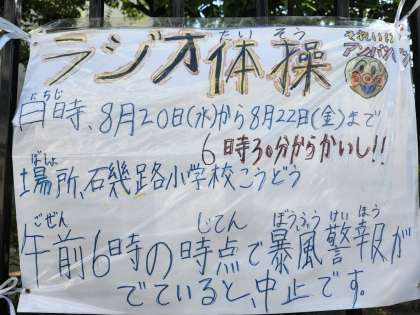 たい そう
ラジオ体操
それいけ
アンパンマン
にちじ
日時、8月20日(水)から8月22日(金)まで
6時30分からかいし!!
ばしょ
場所、石幾路小学校こうどう
ごぜん じてん ぼうふう けい ほう
午前6時の時点で暴風警報が
でていると、中止です。